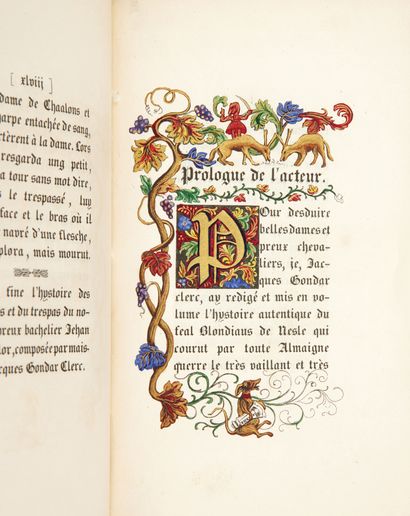 [ xlviij ]
dame de Chaalons et
harpe entachée de sang,
rtèrent à la dame. Lors
resgarda ung petit
a tour sans mot dire,
s le trespassé, luy
face et le bras où il
navré d'une flesche,
plora, mais mourut.
fine l'hystoire des
s et du trespas du no-
preux bachelier Jehan
lor, composée par mais-
cques Gondar Clerc.
Prologue de l'acteur.
POur desduire
belles dames et
preux cheva-
liers, je, Jac-
ques Gondar
clerc, ay redigé et mis en vo-
lume l'hystoire autentique du
feal Blondiaus de Nesle qui
courut par toute Almaigne
querre le très vaillant et très